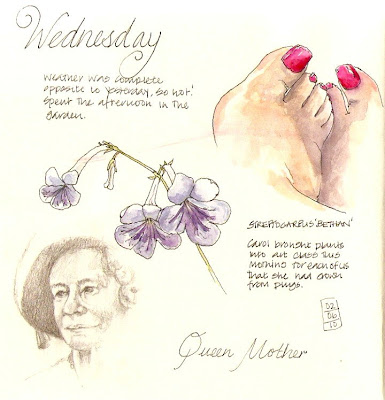 Wednesday
Weather was complete
opposite to yesterday, so hot!
Spent the afternoon in the
garden.
STREPTOCARPUS 'BETHAN'
Carol brought plants
into art class this
morning for each of us
that she had grown
from plugs.
02
06
10
Queen Mother